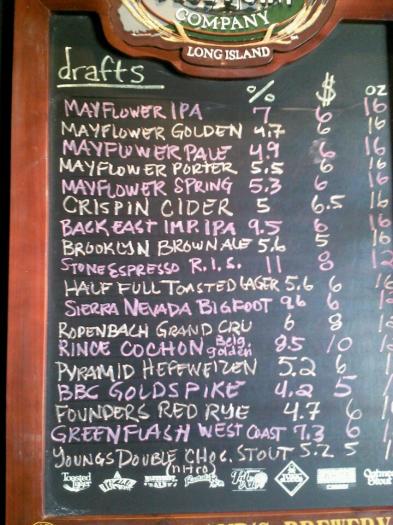 COMPANY
LONG ISLAND
drafts % $ oz
MAYFLOWER IPA 7 6 16
MAYFLOWER GOLDEN 4.7 6 16
MAYFLOWER PALE 4.9 6 16
MAYFLOWER PORTER 5.5 6 16
MAYFLOWER SPRING 5.3 6 16
CRISPIN CIDER 5 6.5 16
BACK EAST IMP. IPA 9.5 6 16
BROOKLYN BROWN ALE 5.6 5 16
STONE ESPRESSO R.I.S. 11 8 12
HALF FULL TOASTED LAGER 5.6 6 16
SIERRA NEVADA BIGFOOT 9.6 6 12
RODENBACH GRAND CRU 6 8
RINCE COCHON Belg. golden 8.5 10
PYRAMID HEFEWEIZEN 5.2 6
BBC GOLDSPIKE 4.2 5
FOUNDERS RED RYE 4.7 6
GREENFLASH WEST COAST 7.3 6
YOUNGS DOUBLE CHOC. STOUT 5.2 5
(nitro)
Toasted Lager
Oatmeal Stout
BREWERY